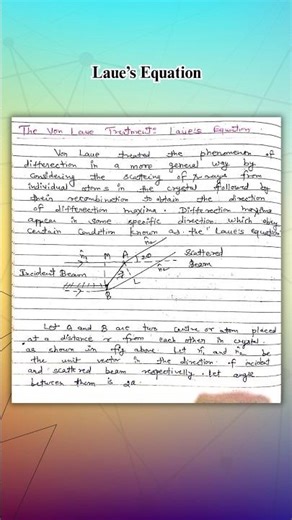 Laue's Equation
The Von Laue Treatment: Laue's Equation
Von Laue treated the phenomenon of
differsection in a more general way by
considering the scattering of x-rays from
individual atoms in the crystal followed by
their recombination to obtain the direction
of differsection maxima. Differection maxima
appear in some specific direction which obey
certain condition known as the "Laue's equation
n̂₁ M A 2θ n̂₂ Scattered
Beam
Incident Beam L
B
Let A and B are two centre or atom placed
at a distance r from each other in crystal
as shown in fig above. Let n̂₁ and n̂₂ be
the unit vector in the direction of incident
and scattered beam respectively. let angle
between them is 2θ.